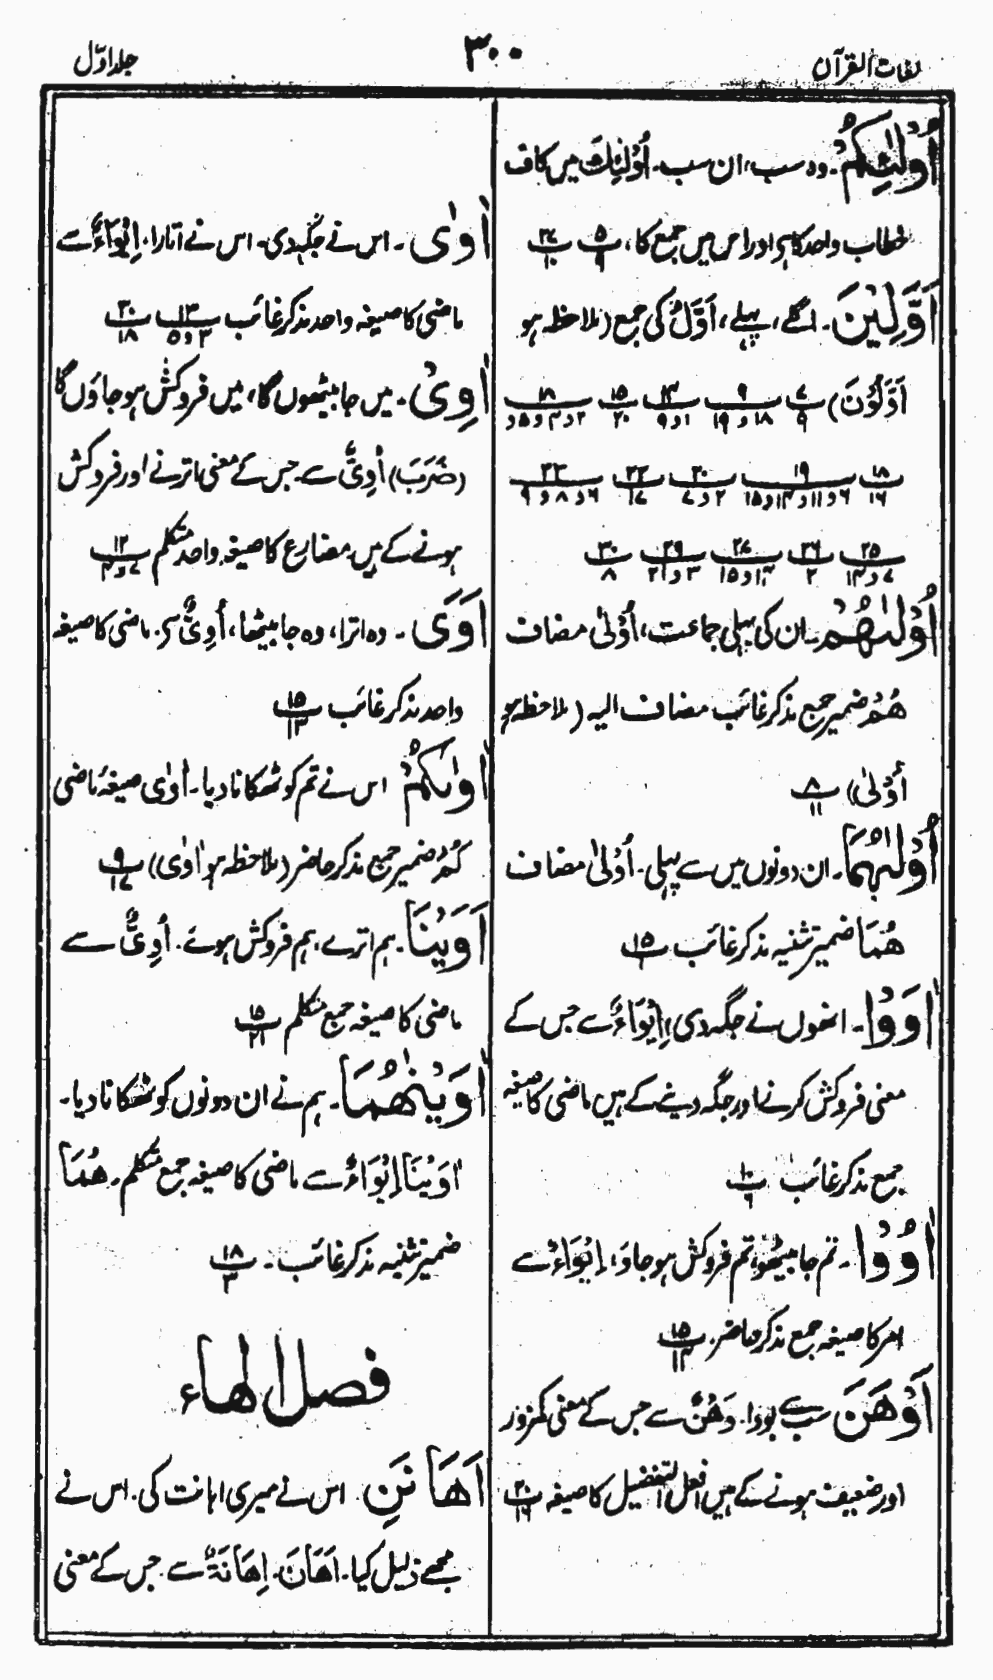 لغات القرآن
۳۰۰
جلد اوّل
أُولٰئِكُمْ۔ وہ سب، ان سب۔ أُوْلٰئِكَ میں کاف
خطاب واحد کا ہی اور اس میں جمع کا، ۵/۹ ۲۷/۱۰
اَوَّلِيْنَ۔ اگلے، پہلے، اَوَّلُ کی جمع (ملاحظہ ہو
اَوَّلُوْنَ) ۷/۹ ۹/۱۸ و ۱۹ ۱۴/۱ و ۹ ۱۵/۲۰ ۱۸/۲ و ۴ و ۵ و
۱۸/۱۶ ۱۹/۶ و ۱۱ و ۱۴ و ۱۵ ۲۰/۲ و ۷ ۲۲/۱۷ ۲۳/۶ و ۸ و ۹
۲۵/۷ و ۱۴ ۲۶/۲ ۲۷/۱۴ و ۱۵ ۲۹/۳ و ۲۱ ۳۰/۸
أُوْلٰىهُمْ۔ ان کی پہلی جماعت، أُوْلٰی مضاف
هُمْ ضمیر جمع مذکر غائب مضاف الیہ (ملاحظہ ہو
أُوْلٰی) ۸/۱۱
أُوْلٰىهُمَا۔ ان دونوں میں سے پہلی۔ أُوْلٰی مضاف
هُمَا ضمیر تثنیہ مذکر غائب ۱۵/۱
اٰوَوْا۔ انھوں نے جگہ دی، اِيْوَاءٌ سے جس کے
معنی فروکش کرنے اور جگہ دینے کے ہیں ماضی کا صیغہ
جمع مذکر غائب ۱۰/۶
اٰوُوْا۔ تم جا بیٹھو، تم فروکش ہو جاؤ، اِيْوَاءٌ سے
امر کا صیغہ جمع مذکر حاضر۔ ۱۵/۱۴
اَوْهَنَ سب سے بودا۔ وَهْنٌ سے جس کے معنی کمزور
اور ضعیف ہونے کے ہیں افعل التفضیل کا صیغہ ۲۰/۱۶
اٰوٰى۔ اس نے جگہ دی۔ اس نے اتارا، اِيْوَاءٌ سے
ماضی کا صیغہ واحد مذکر غائب ۱۳/۳ و ۵ ۳۰/۱۸
اٰوِيْ۔ میں جا بیٹھوں گا، میں فروکش ہو جاؤں گا
(ضَرَبَ) أُوِيٌّ سے جس کے معنی اترنے اور فروکش
ہونے کے ہیں مضارع کا صیغہ واحد متکلم ۱۲/۷ و ۴
اَوَى۔ وہ اترا، وہ جا بیٹھا، أُوِيٌّ سے، ماضی کا صیغہ
واحد مذکر غائب ۱۵/۱۳
اٰوٰىكُمْ اس نے تم کو ٹھکانا دیا۔ اٰوٰى صیغہ ماضی
كُمْ ضمیر جمع مذکر حاضر (ملاحظہ ہو اٰوٰى) ۹/۱۷
اَوَيْنَا۔ ہم اترے، ہم فروکش ہوئے۔ أُوِيٌّ سے
ماضی کا صیغہ جمع متکلم ۱۵/۲۱
اٰوَيْنٰهُمَا۔ ہم نے ان دونوں کو ٹھکانا دیا۔
اٰوَيْنَا اِيْوَاءٌ سے ماضی کا صیغہ جمع متکلم۔ هُمَا
ضمیر تثنیہ مذکر غائب۔ ۱۸/۳
فصل الهاء
اَهَانَنِ اس نے میری اہانت کی۔ اس نے
مجھے ذلیل کیا۔ اَهَانَ۔ اِهَانَةٌ سے جس کے معنی